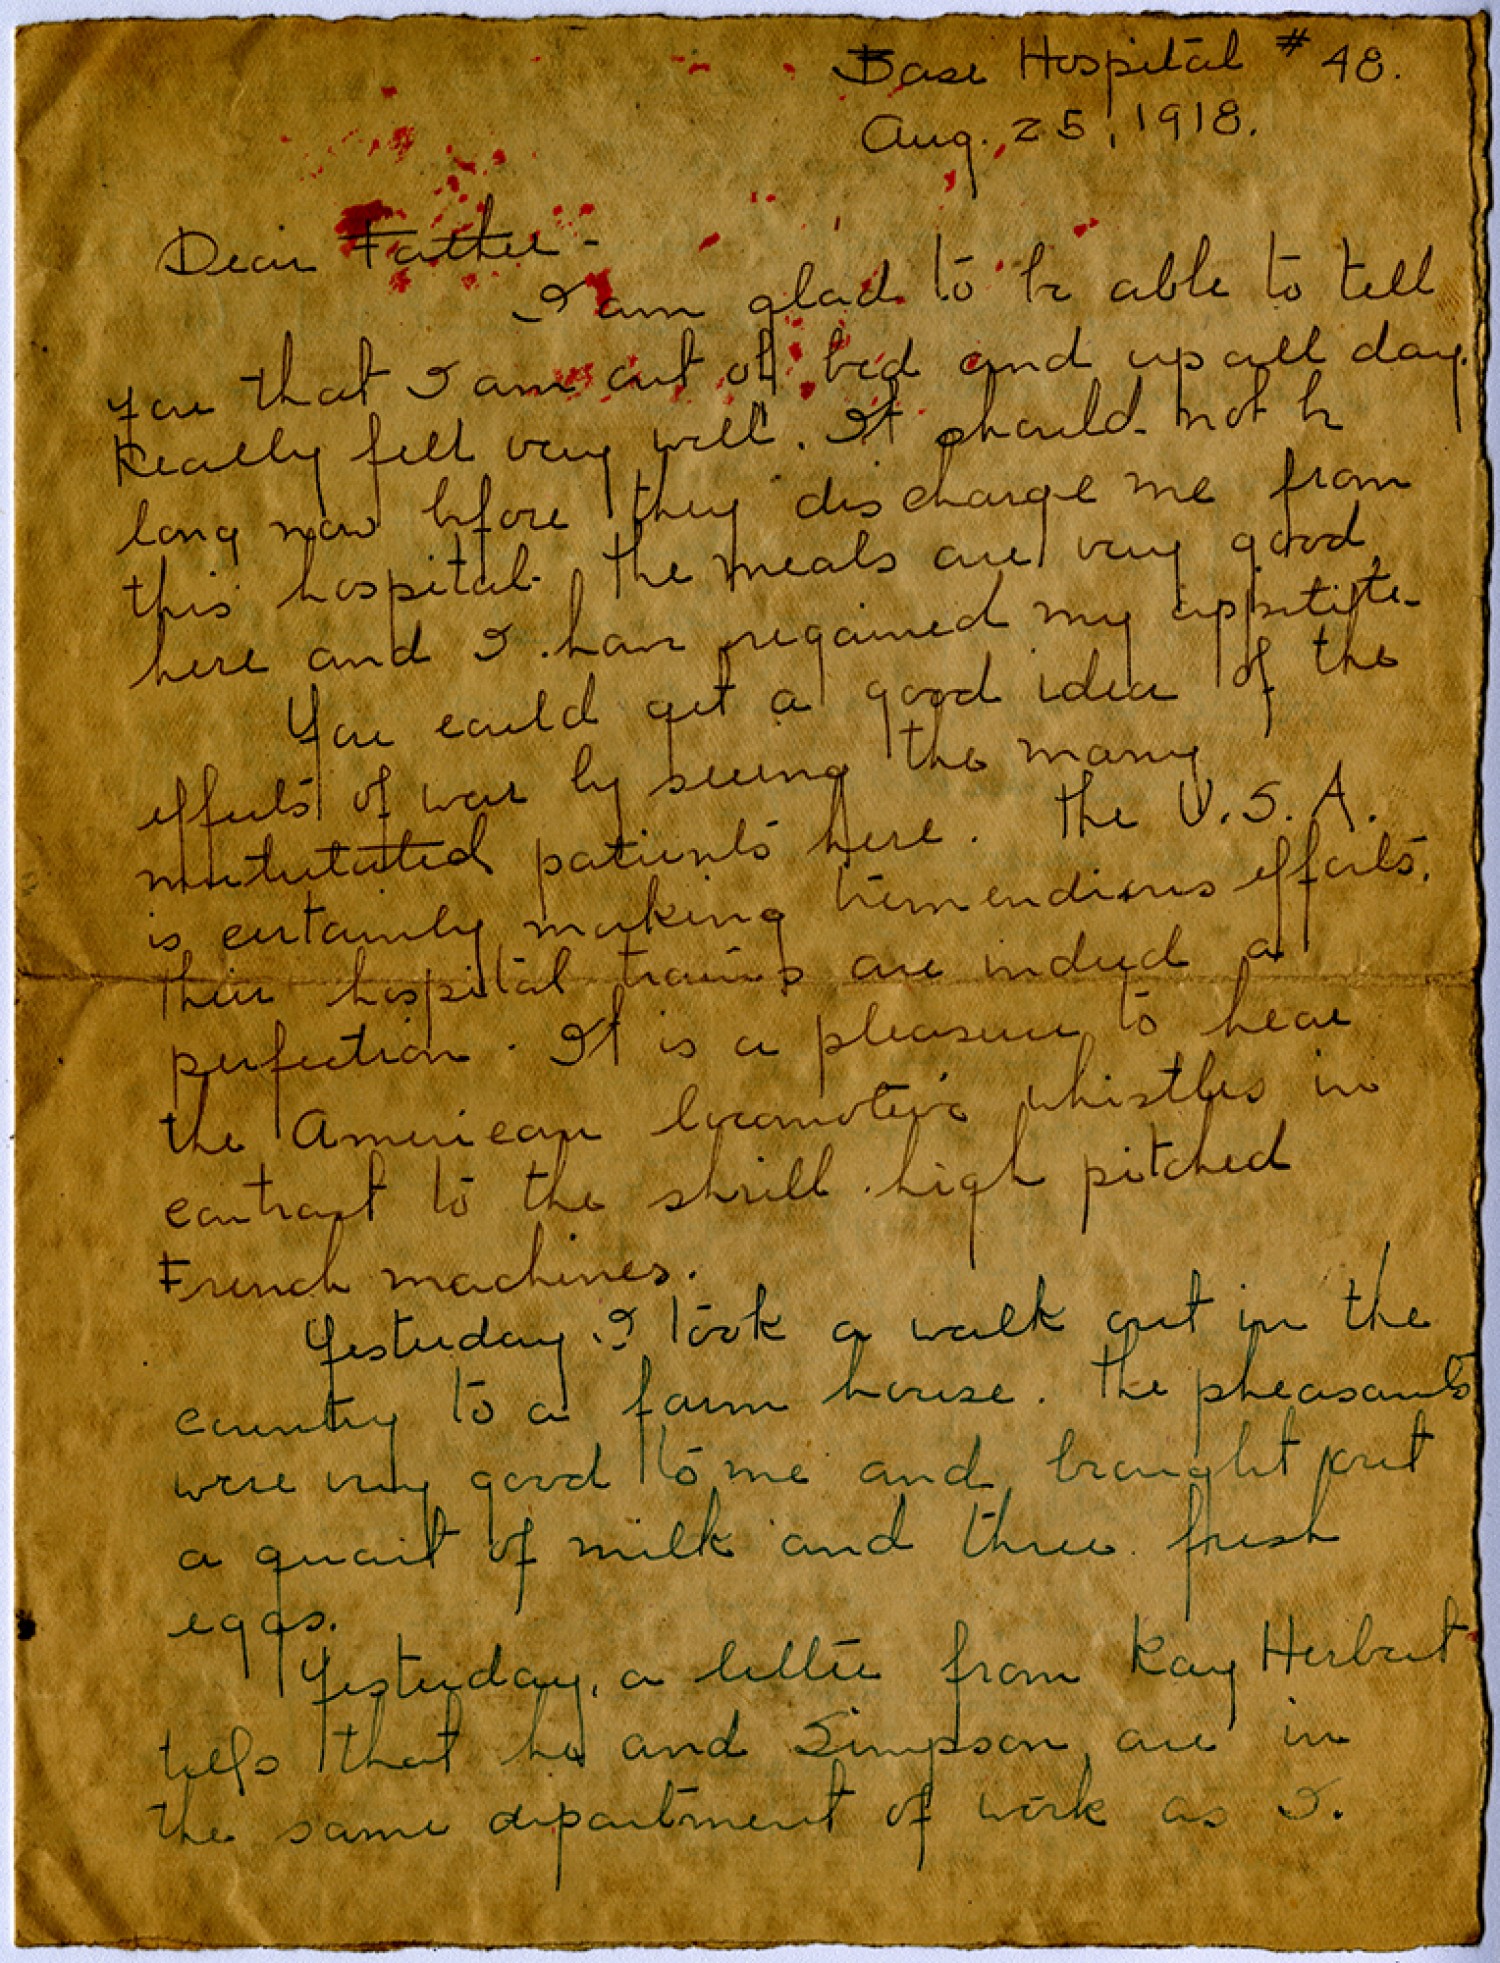 Base Hospital # 48.
Aug. 25, 1918.
Dear Father -
I am glad to be able to tell
you that I am out of bed and up all day.
Really felt very well. It should not be
long now before they discharge me from
this hospital. The meals are very good
here and I have regained my appetite.
You could get a good idea of the
effects of war by seeing the many
mutulated patients here. The U.S.A.
is certainly making tremendious efforts.
Their hospital trains are indeed a
perfection. It is a pleasure to hear
the American locomotive whistles in
contrast to the shrill high pitched
French machines.
Yesterday I took a walk out in the
country to a farm house. The pheasants
were very good to me and brought out
a quart of milk and three fresh
eggs.
Yesterday, a letter from Kay Herbert
tells that he and Simpson are in
the same department of work as I.